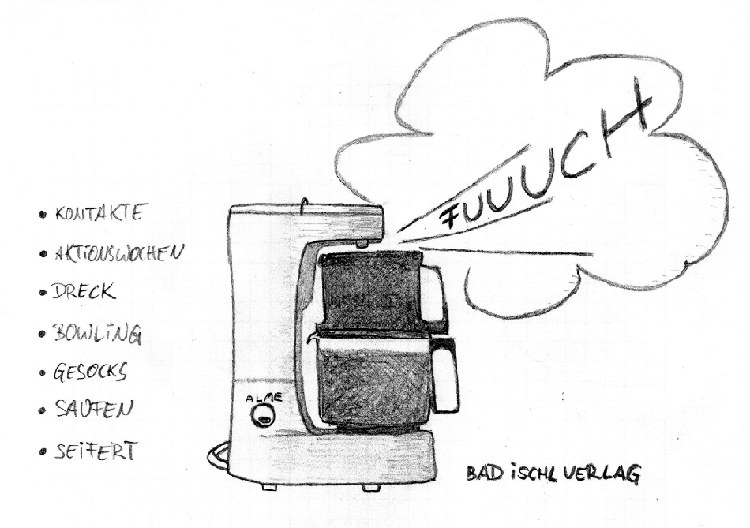 FUUUCH
• KONTAKTE
• AKTIONSWOCHEN
• DRECK
• BOWLING
• GESOCKS
• SAUFEN
• SEIFERT
ALME
BAD iSCHL VERLAG